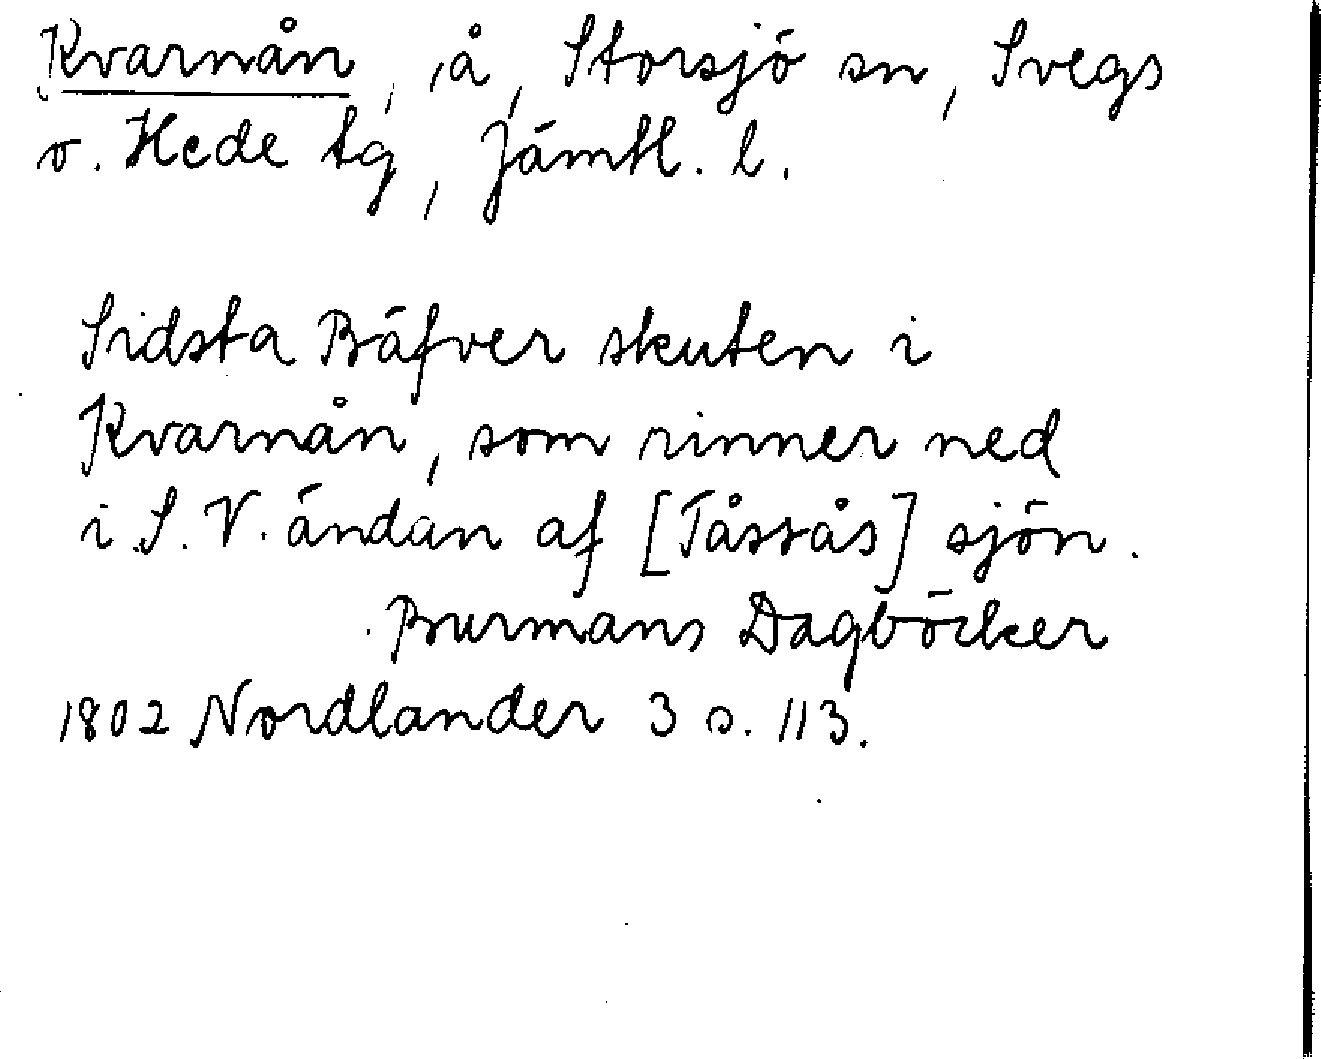 Kvarnån, å, Storsjö sn, Svegs
o. Hede tg, Jämtl. l.
Sidsta Bäfver skuten i
Kvarnån, som rinner ned
i S. V. ändan af [Tåssås] sjön.
Burmans Dagböcker
1802 Nordlander 3 s. 113.